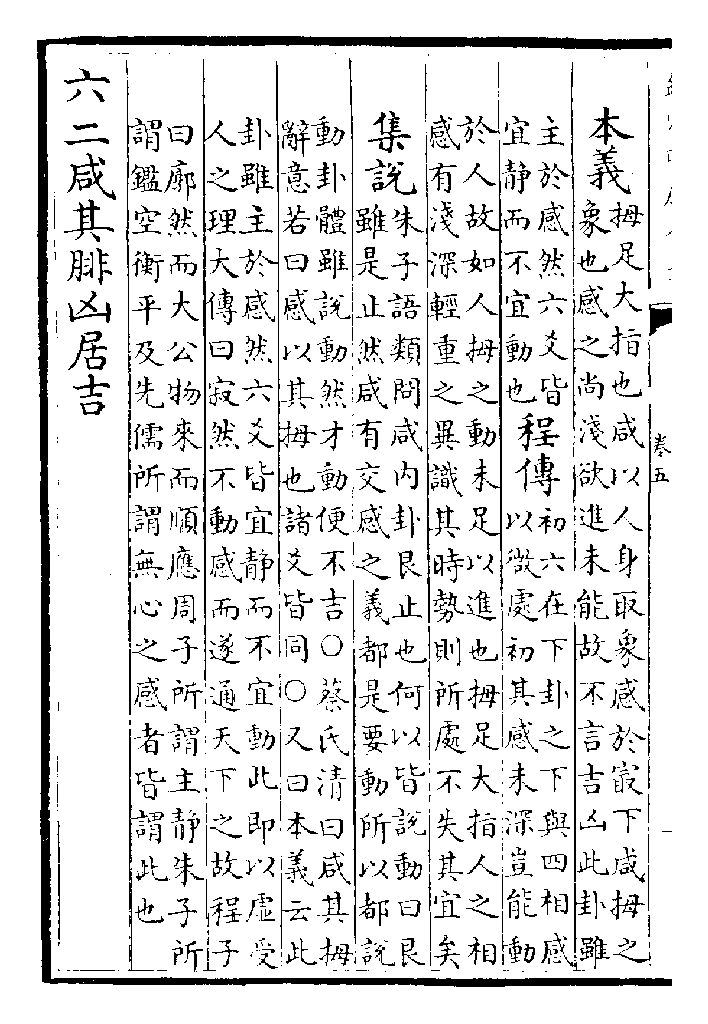 卷五
本義拇足大指也咸以人身取象感於㝡下咸拇之
象也感之尚淺欲進未能故不言吉凶此卦雖
主於感然六爻皆
宜静而不宜動也
程傳初六在下卦之下與四相感
以微處初其感未深豈能動
於人故如人拇之動未足以進也拇足大指人之相
感有淺深輕重之異識其時勢則所處不失其宜矣
集說朱子語類問咸内卦艮止也何以皆說動曰艮
雖是止然咸有交感之義都是要動所以都說
動卦體雖說動然才動便不吉○蔡氏清曰咸其拇
辭意若曰感以其拇也諸爻皆同○又曰本義云此
卦雖主於感然六爻皆宜静而不宜動此即以虛受
人之理大傳曰寂然不動感而遂通天下之故程子
曰廓然而大公物來而順應周子所謂主静朱子所
謂鑑空衡平及先儒所謂無心之感者皆謂此也
六二咸其腓凶居吉